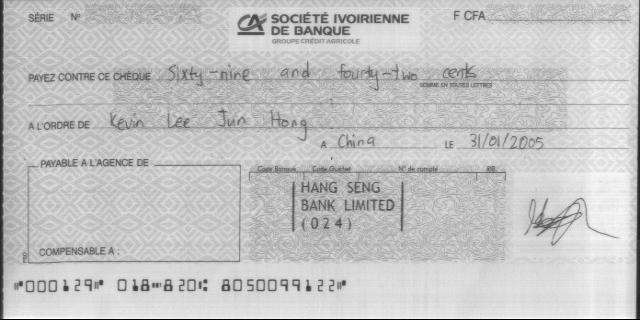 SÉRIE N° SOCIÉTÉ IVOIRIENNE F CFA
DE BANQUE
GROUPE CRÉDIT AGRICOLE
PAYEZ CONTRE CE CHÈQUE Sixty-nine and fourty-two cents
SOMME EN TOUTES LETTRES
A L'ORDRE DE Kevin Lee Jun Hong
A China LE 31/01/2005
PAYABLE A L'AGENCE DE
Code Banque Code Guichet N° de compte RIB
HANG SENG
BANK LIMITED
(024)
COMPENSABLE A :
⑈000129⑈ 018⑉820⑆ 8050099122⑈